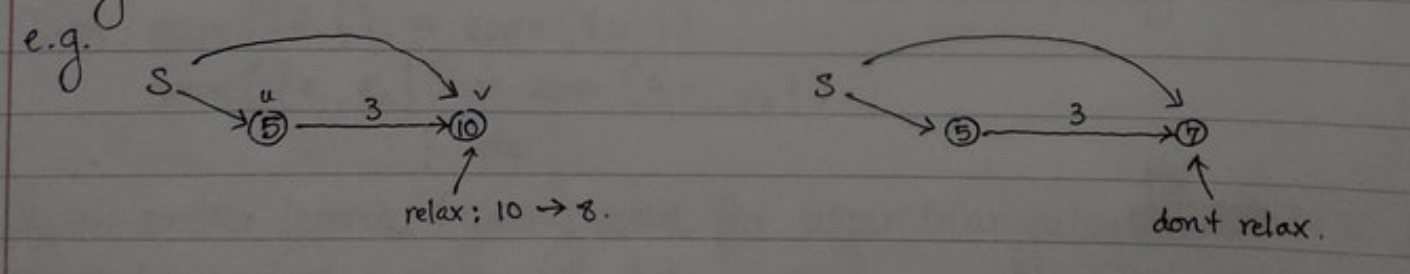 e.g.
S u 5 3 v 10
relax: 10 → 8.
S 5 3 7
don't relax.